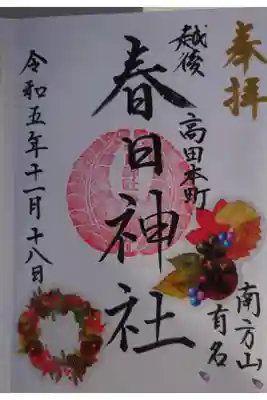 奉拝
越後
高田本町
春日神社
令和五年十一月十八日
南方山
有名